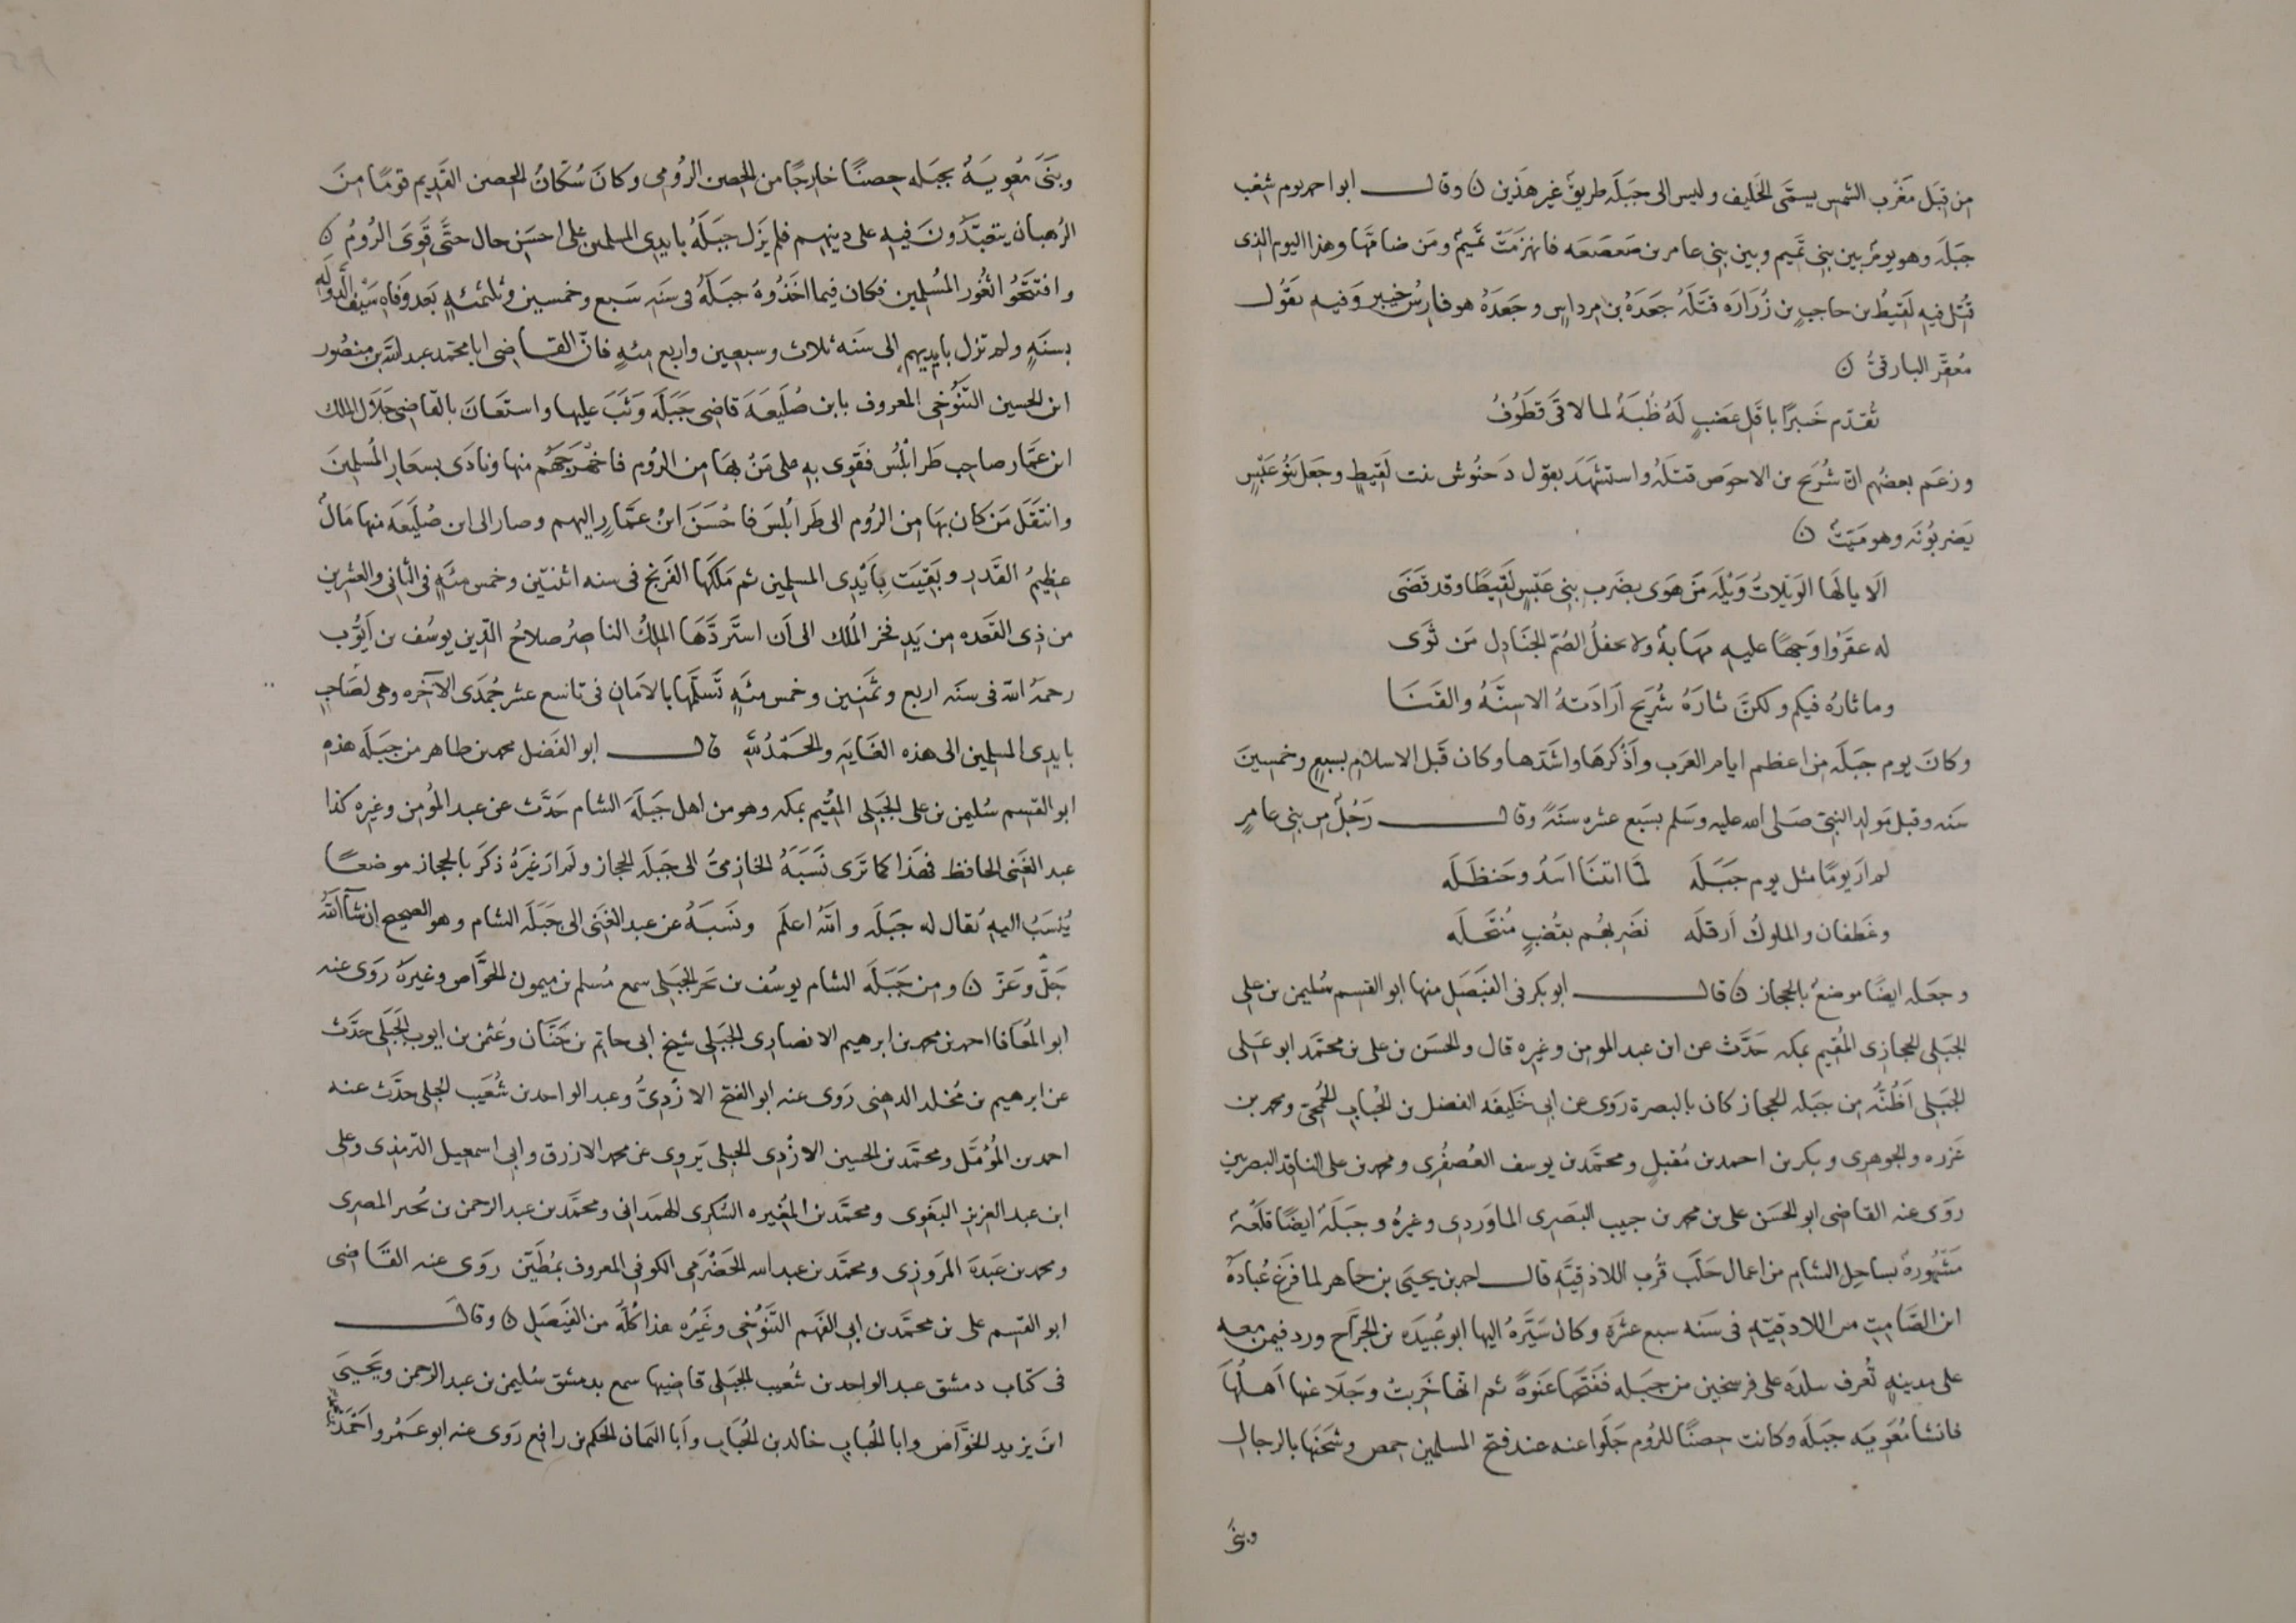 من قبَل مَغْرب الشمس يسمَّى الخَليف وليس الى جَبَلَه طريقٌ غير هَذَين ن وقال ابو احمد يوم شِعْب
جبَلَه وهو يومٌ بين بنى تَميم وبين بنى عامر بن صَعصَعَه فانهزَمَتْ تَميمٌ ومَن ضامّها وهذا اليوم الذى
قُتِل فيهِ لَقيْطُ بن حاجبٍ بن زُرَارَه قتَلَهُ جَعَدَهُ بن مِرداسٍ وجَعَدَهُ هو فارسُ خيبر وَفيه يقوُل
مُعقِّر البارقىُّ ن
تُقدّم خَبرًا باقل عَضبٍ لَهُ ظُبَهٌ لما لاقَى قطَوُفُ
وزعَم بعضُهم انّ شُرَيح بن الاحوَص قتلَهُ واستشهَدَ بقول دَحنُوش بنت لَقيطٍ وجعَل بَنُو عَبْسٍ
يَضربُونَه وهو مَيّتٌ ن
الَا يالَها الوَيْلاتُ وَيْلَهَ مَنْ هَوَى بضَربِ بنى عَبْسٍ لَقيطًا وقد قَضَى
له عقَرُوا وَجهًا عليهِ مهَابهٌ ولا تحفلُ الصُمّ الجنَادِل مَن ثَوَى
وما ثارُهُ فيكم ولكنَّ ثارَهُ شُرَيح اَرادَتهُ الاسنَّهُ والقَنَا
وكانَ يوم جَبَلَه من اعظم ايام العَرب واَذْكَرهَا واشَدّها وكان قَبْل الاسلام بسبعٍ وخمسينَ
سَنَه وقبل مَولِد النبىّ صَلى الله عليه وسَلم بسَبع عشره سنَهً وقال رَجُلٌ من بنى عامرٍ
لم اَرَ يومًا مثل يوم جَبَلَه لمّا اتتنَا اَسَدُ وحَنظَلَه
وغَطَفان والملوكُ اَرْفلَه نَضْربهُم بقُضُبٍ مُنتَحلَه
وجبَله ايضًا موضعٌ بالحجاز ن قال ابو بكر فى الفَيْصَل منها ابو القسم سُليمن بن على
الجَبَلى الحجازى المُقيم بمكه حَدَّث عن ابن عبد المومن وغيره قال والحسَن بن على بن محمَّد ابو عَلى
الجَبَلى اَظُنّهُ من جَبَله الحجاز كان بالبصرة رَوَى عن ابى خَليفَه الفضل بن الحُبَاب الجُمحىّ ومحمد بن
عَزره والجوهرى وبكر بن احمد بن مُقبلٍ ومحمَّد بن يوسف العُصفُرى ومحمد بن على الناقد البصريين
روَى عنه القاضى ابو الحسَن على بن محمد بن حبيب البصَرى الماوَردى وغيرهُ وجبَلَهُ ايضًا قلعَهٌ
مَشْهورهٌ بساحِل الشام من اعمال حَلَب قُرب اللاذقيَّه قال احمد بن يحيَى بن جابر لما فرغ عُبادَهُ
ابن الصَّامِتِ من اللاذقيّهِ فى سَنَه سبع عشَرَه وكان سَيَّرهُ اليها ابو عُبَيدَه بن الجرَاح ورد فيمن معه
على مدينهٍ تُعرف بلدَه على فرسخين من جبَله ففَتَحها عَنوَهً ثم انها خَرِبتْ وجَلا عنها اَهلُهَا
فانشا مُعَويَه جبَلَه وكانت حصنًا للرُوم جَلَوا عنه عند فتح المسلمين حمص وشحَنهَا بالرجال
وبنى
وبنَى مُعويَهُ بجبَله حصنًا خارجًا من الحصن الرُومى وكانَ سُكّانُ الحصن القَديم قومًا منَ
الرُهبان يتعبَّدُونَ فيه على دينهم فلم يزَل جبَلَهُ بايدى المسلمين على احسَن حال حتَّى قَوَى الرُومُ ن
وافتتحُوا ثُغور المُسْلِمين فكان فيما اخَذُوهُ جبَلَهُ فى سنَه سَبع وخمسين وثلثمئهٍ بَعد وفاهِ سَيْفِ الدَّولَهِ
بسنَهٍ ولم تزل بايديهم الى سنَه ثلاث وسبعين واربع مئهٍ فانّ القاضى ابا محمَّد عبد الله بن منصُور
ابن الحسين التَنُوُخى المعروف بابن صُلَيعَهَ قاضى جَبَلَه وَثَبَ عليها واستعَانَ بالقاضى جَلَال الملك
ابن عَمَّار صاحب طَرابُلُس فقَوِى به على مَنْ بهَا من الرُوم فاخْرَجَهُم منها ونادَى بشعَار المُسلمينَ
وانتَقَلَ مَن كان بهَا من الرُوم الى طَرابُلسَ فاحْسَنَ ابنُ عمَّارٍ اليهم وصار الى ابن صُلَيعَه منها مَالٌ
عظيمُ القَدر وبَقيَت بايْدِى المسلمين ثم مَلكَها الفَرنج فى سنه اثنتين وخمس مئهٍ فى الثانى والعشرين
من ذى القَعده من يَدِ فخر المُلك الى اَن استَردَّهَا الملِكُ الناصِرُ صلاحُ الدّين يوسُف بن اَيُّوب
رحمَهُ الله فى سنَه اربع وثمَنين وخمس مئَهٍ تَسَلّمها بالاَمَان فى تاسع عشر جُمَدى الآخره وهى لصَاحِبٍ
بايدى المسلمين الى هذه الغَايَه والحَمْدُ لِلّه قال ابو الفَضل محمد بن طاهر من جبَلَه هذه
ابو القسم سُليمن بن على الجَبَلى المُقيم بمكه وهو من اهل جَبَلَهَ الشام حَدَّث عن عبد المؤمن وغيره كذا
عبد الغَنى الحافظ فهَذا كما تَرى نَسَبَهُ الخازمىُّ الى جَبَلَه الحجاز ولم اَر غيَرهُ ذكَرَ بالحجاز موضعًا
يُنسَبُ اليهِ يُقال له جبَلَه واللهُ اعلَم ونسَبَهُ عن عبد الغَنى الى جَبَلَه الشام وهو الصحيح ان شآ اللهُ
جَلَّ وعَزّ ن ومن جَبَلَه الشام يوسُف بن بَحر الجبَلى سمع مُسلم بن ميمون الخوَّاص وغيره رَوى عنه
ابو المُعَافا احمد بن محمد بن ابرهيم الانصارى الجَبَلى شيخ ابى حاتِم بن حَبَّان وعُثمن بن ايوب الجَبَلى حدَّث
عن ابرهيم بن مُخلد الدهنى رَوى عنه ابو الفتح الازْدىُّ وعبد الواحد بن شُعَيب الجبلى حدَّث عنه
احمد بن المُؤَمَّل ومحمَّد بن الحسين الازْدى الجبلى يَروِى عن محمد الازرق وابى اسمعيل الترمذى وعلى
ابن عبد العزيز البغَوى ومحمَّد بن المُغيره السُكرى الهمدانى ومحمَّد بن عبد الرحمن بن بُحير المصرى
ومحمد بن عَبدَه المَروَزى ومحمَّد بن عبد الله الحَضْرَمى الكوفى المعروف بمُطَيَّن روَى عنه القاضى
ابو القسم على بن محمَّد بن ابى الفَهم التَنُوُخى وغَيرُه هذا كُلّه من الفَيصَل ن وقال
فى كتاب دمشق عبد الواحد بن شُعيب الجَبَلى قاضيها سمع بدمشق سُليمن بن عبد الرحمن ويَحيىَ
ابن يزيد الخوَّاص وابا الحُباب خالد بن الحُبَاب واَبا اليمان الحَكم بن رافع رَوَى عنه ابو عَمْرو اَحَمدُ